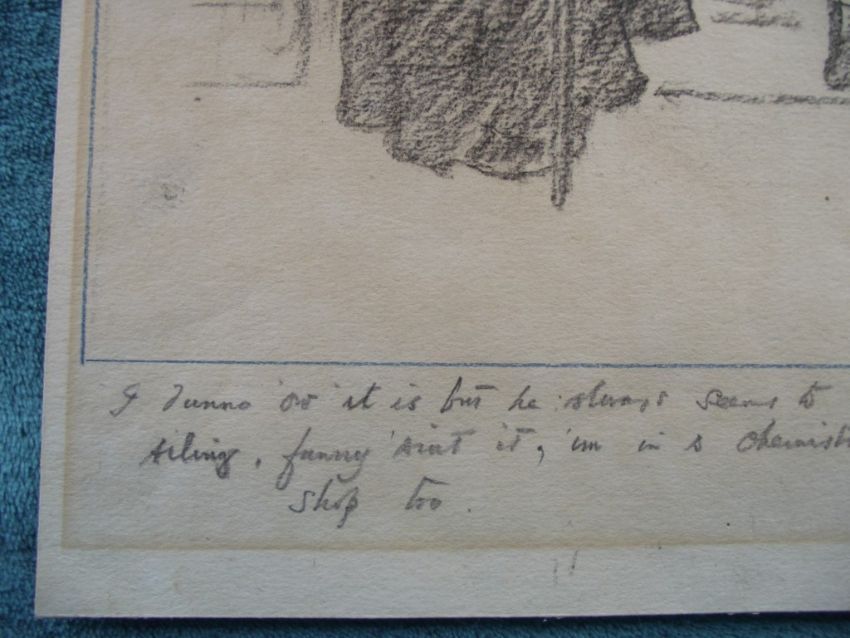 I dunno 'ow it is but he always seems to
ailing, funny 'aint it, 'im in a chemist
shop too.